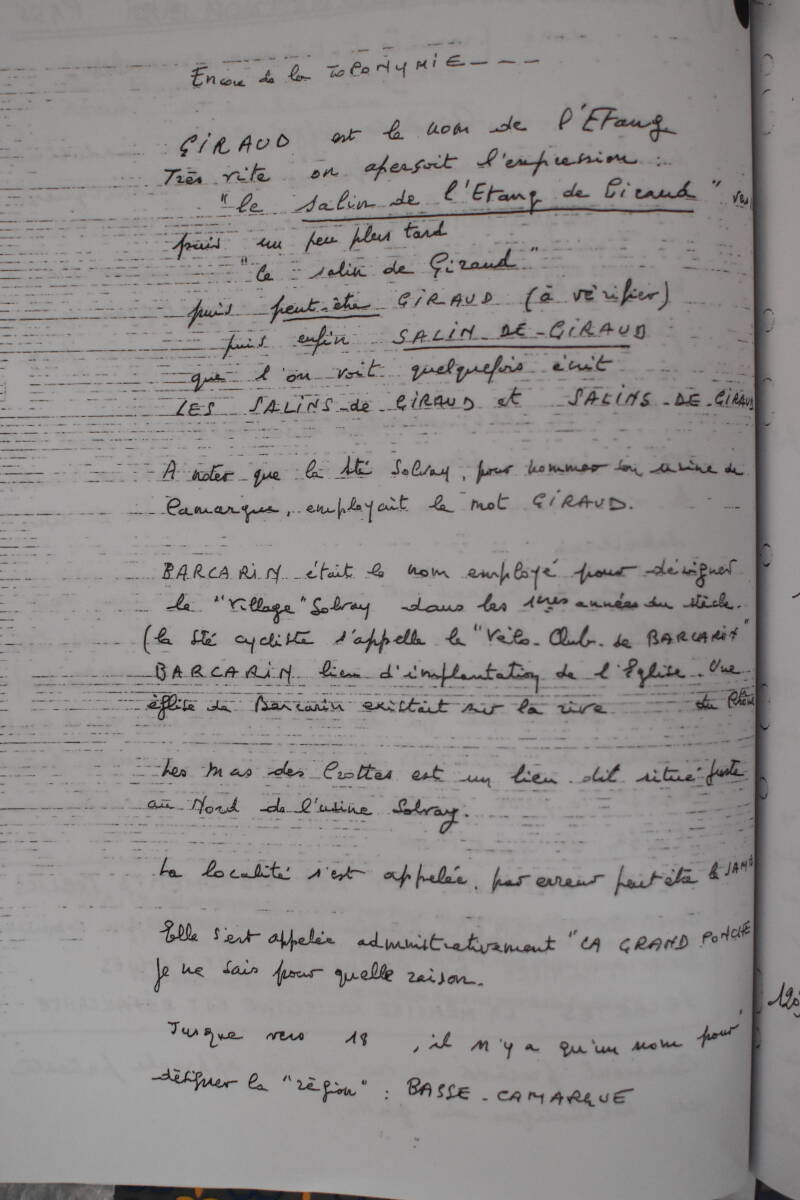 Encore de la TOPONYMIE - - -
GIRAUD est le nom de l'ETang
Très vite on aperçoit l'expression :
"le salin de l'Etang de Giraud"
puis un peu plus tard
"le salin de Giraud"
puis peut-être GIRAUD (à vérifier)
puis enfin SALIN-DE-GIRAUD
que l'on voit quelquefois écrit
LES SALINS-de GIRAUD et SALINS-DE-GIRAUD
A noter que la Sté Solvay, pour nommer son usine de
Camargue, employait le mot GIRAUD.
BARCARIN était le nom employé pour désigner
le "Village" Solvay dans les 1ères années du siècle.
(la Sté cycliste s'appelle le "Vélo-Club-de BARCARIN"
BARCARIN lieu d'implantation de l'Eglise. Une
église de Barcarin existait sur la rive du Rhône
Les Mas des Crottes est un lieu dit situé juste
au Nord de l'usine Solvay.
La localité s'est appelée, par erreur peut être le
Elle s'est appelée administrativement "LA GRAND PONCHE
Je ne sais pour quelle raison.
Jusque vers 18 , il n'y a qu'un nom pour
désigner la "région" : BASSE-CAMARGUE